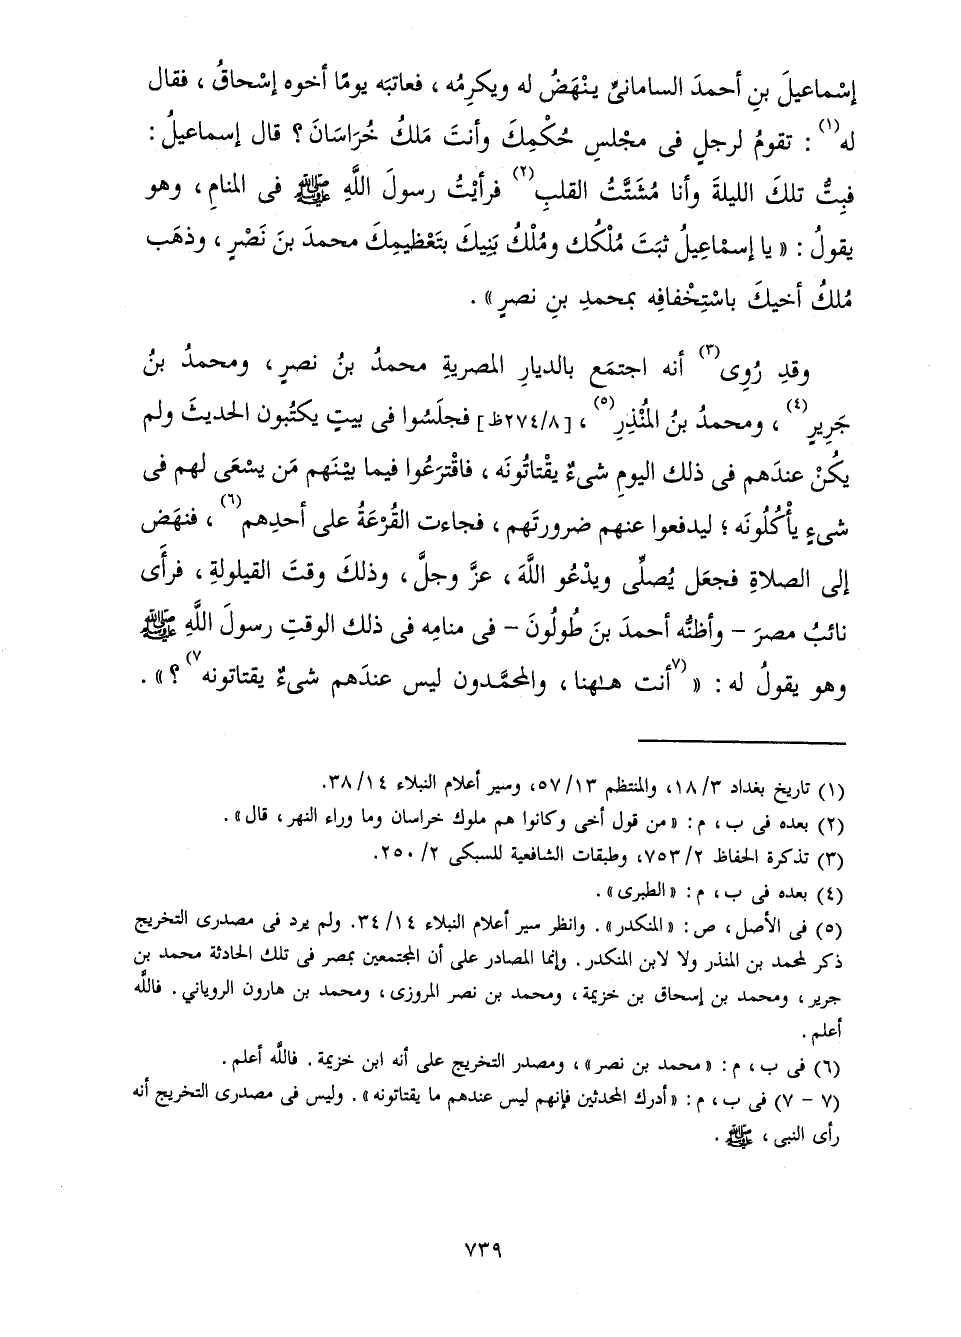 إسْماعيلَ بنِ أحمدَ السامانىِّ ينْهَضُ له ويكرِمُه ، فعاتبَه يومًا أخوه إسْحاقُ ، فقال
له(١) : تقومُ لرجلٍ فى مجْلسِ حُكْمِكَ وأنتَ مَلكُ خُرَاسَانَ ؟ قال إسماعيلُ :
فبِتُّ تلكَ الليلةَ وأنا مُشَتَّتُ القلبِ(٢) فرأيْتُ رسولَ اللَّهِ ﷺ فى المنامِ ، وهو
يقولُ : « يا إسْماعِيلُ ثبَتَ مُلْكُك ومُلْكُ بَنِيكَ بتَعْظيمِكَ محمدَ بنَ نَصْرٍ ، وذهَب
مُلكُ أخيكَ باسْتِخْفافِه بمحمدِ بنِ نصرٍ » .
وقدِ رُوِى(٣) أنه اجتمَع بالديارِ المصريةِ محمدُ بنُ نصرٍ ، ومحمدُ بنُ
جَريرٍ(٤) ، ومحمدُ بنُ المُنْذِرِ(٥) ، [٢٧٤/٨ظ] فجلَسُوا فى بيتٍ يكتُبون الحديثَ ولم
يكُنْ عندَهم فى ذلك اليومِ شىءٌ يقْتاتُونَه ، فاقْتَرَعُوا فيما بيْنَهم مَن يسْعَى لهم فى
شىءٍ يأْكُلُونَه ؛ ليدفعوا عنهم ضرورتَهم ، فجاءت القُرْعَةُ على أحدِهم(٦) ، فنهَض
إلى الصلاةِ فجعَل يُصلِّى ويدْعُو اللَّهَ ، عزَّ وجلَّ ، وذلكَ وقتَ القيلولةِ ، فرأَى
نائبُ مصرَ – وأظنُّه أحمدَ بنَ طُولُونَ – فى منامِه فى ذلك الوقتِ رسولَ اللَّهِ ﷺ
وهو يقولُ له : « (٧أنت هلهنا ، والمحمَّدون ليس عندَهم شىءٌ يقتاتونه٧) ؟ » .
(١) تاريخ بغداد ٣/ ١٨، والمنتظم ١٣/ ٥٧، وسير أعلام النبلاء ١٤/ ٣٨.
(٢) بعده فى ب ، م : « من قول أخى وكانوا هم ملوك خراسان وما وراء النهر ، قال » .
(٣) تذكرة الحفاظ ٢/ ٧٥٣، وطبقات الشافعية للسبكى ٢/ ٢٥٠.
(٤) بعده فى ب ، م : « الطبرى » .
(٥) فى الأصل ، ص : « المنكدر » . وانظر سير أعلام النبلاء ١٤/ ٣٤. ولم يرد فى مصدرى التخريج
ذكر لمحمد بن المنذر ولا لابن المنكدر . وإنما المصادر على أن المجتمعين بمصر فى تلك الحادثة محمد بن
جرير ، ومحمد بن إسحاق بن خزيمة ، ومحمد بن نصر المروزى ، ومحمد بن هارون الروياني . فاللَّه
أعلم .
(٦) فى ب ، م : « محمد بن نصر » ، ومصدر التخريج على أنه ابن خزيمة . فاللَّه أعلم .
(٧ – ٧) فى ب ، م : « أدرك المحدثين فإنهم ليس عندهم ما يقتاتونه » . وليس فى مصدرى التخريج أنه
رأى النبى ، ﷺ .
٧٣٩